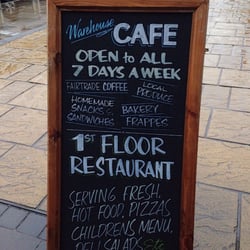 Warehouse CAFE
OPEN to ALL
7 DAYS A WEEK
FAIRTRADE COFFEE
LOCAL PRODUCE
HOMEMADE SNACKS & SANDWICHES
BAKERY
FRAPPES
1ST FLOOR
RESTAURANT
SERVING FRESH
HOT FOOD, PIZZAS
CHILDRENS MENU,
DELI SALADS Etc